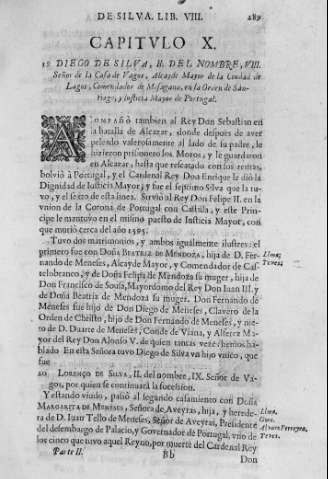 DE SILVA. LIB. VIII. 289
CAPITVLO X.
DIEGO DE SILVA, II. DEL NOMBRE, VIII.
Señor de la Casa de Vagos, Alcayde Mayor de la Ciudad de
Lagos, Comendador de Messagana, en la Orden de San-
tiago, y Iusticia Mayor de Portugal.
ACOMPAÑÒ tambien al Rey Don Sebastian en
la batalla de Alcazar, donde despues de aver
peleado valerosamente al lado de su padre, le
hizieron prisionero los Moros, y le guardaron
en Alcazar, hasta que rescatado con los demàs,
bolviò à Portugal, y el Cardenal Rey Don Enrique le diò la
Dignidad de Iusticia Mayor, y fue el septimo Silva que la tu-
vo, y el sexto de esta linea. Sirviò al Rey Don Felipe II. en la
vnion de la Corona de Portugal con Castilla, y este Prin-
cipe le mantuvo en el mismo puesto de Iusticia Mayor, con
que muriò cerca del año 1585.
Tuvo dos matrimonios, y ambos igualmente ilustres: el
primero fue con Doña BEATRIZ DE MENDOZA, hija de D. Fer-
nando de Meneses, Alcayde Mayor, y Comendador de Cas-
telobranco, y de Doña Felipa de Mendoza su muger, hija de
Don Francisco de Sousa, Mayordomo del Rey Don Iuan III. y
de Doña Beatriz de Mendoza su muger. Don Fernando de
Meneses fue hijo de Don Diego de Meneses, Clavero de la
Orden de Christo, hijo de Don Fernando de Meneses, y nie-
to de D. Duarte de Meneses, Conde de Viana, y Alferez Ma-
yor del Rey Don Alonso V. de quien tantas vezes hemos ha-
blado. En esta Señora tuvo Diego de Silva vn hijo vnico, que
fue
20 LORENÇO DE SILVA, II. del nombre, IX. Señor de Va-
gos, por quien se continuarà la sucession.
Y estando viudo, passò al segundo casamiento con Doña
MARGARITA DE MENESES, Señora de Aveyras, hija, y herede-
ra de D. Iuan Tello de Meneses, Señor de Aveyras, Presidente
del desembargo de Palacio, y Governador de Portugal, vno de
los cinco que tuvo aquel Reyno, por muerte del Cardenal Rey
Parte II. Bb Don